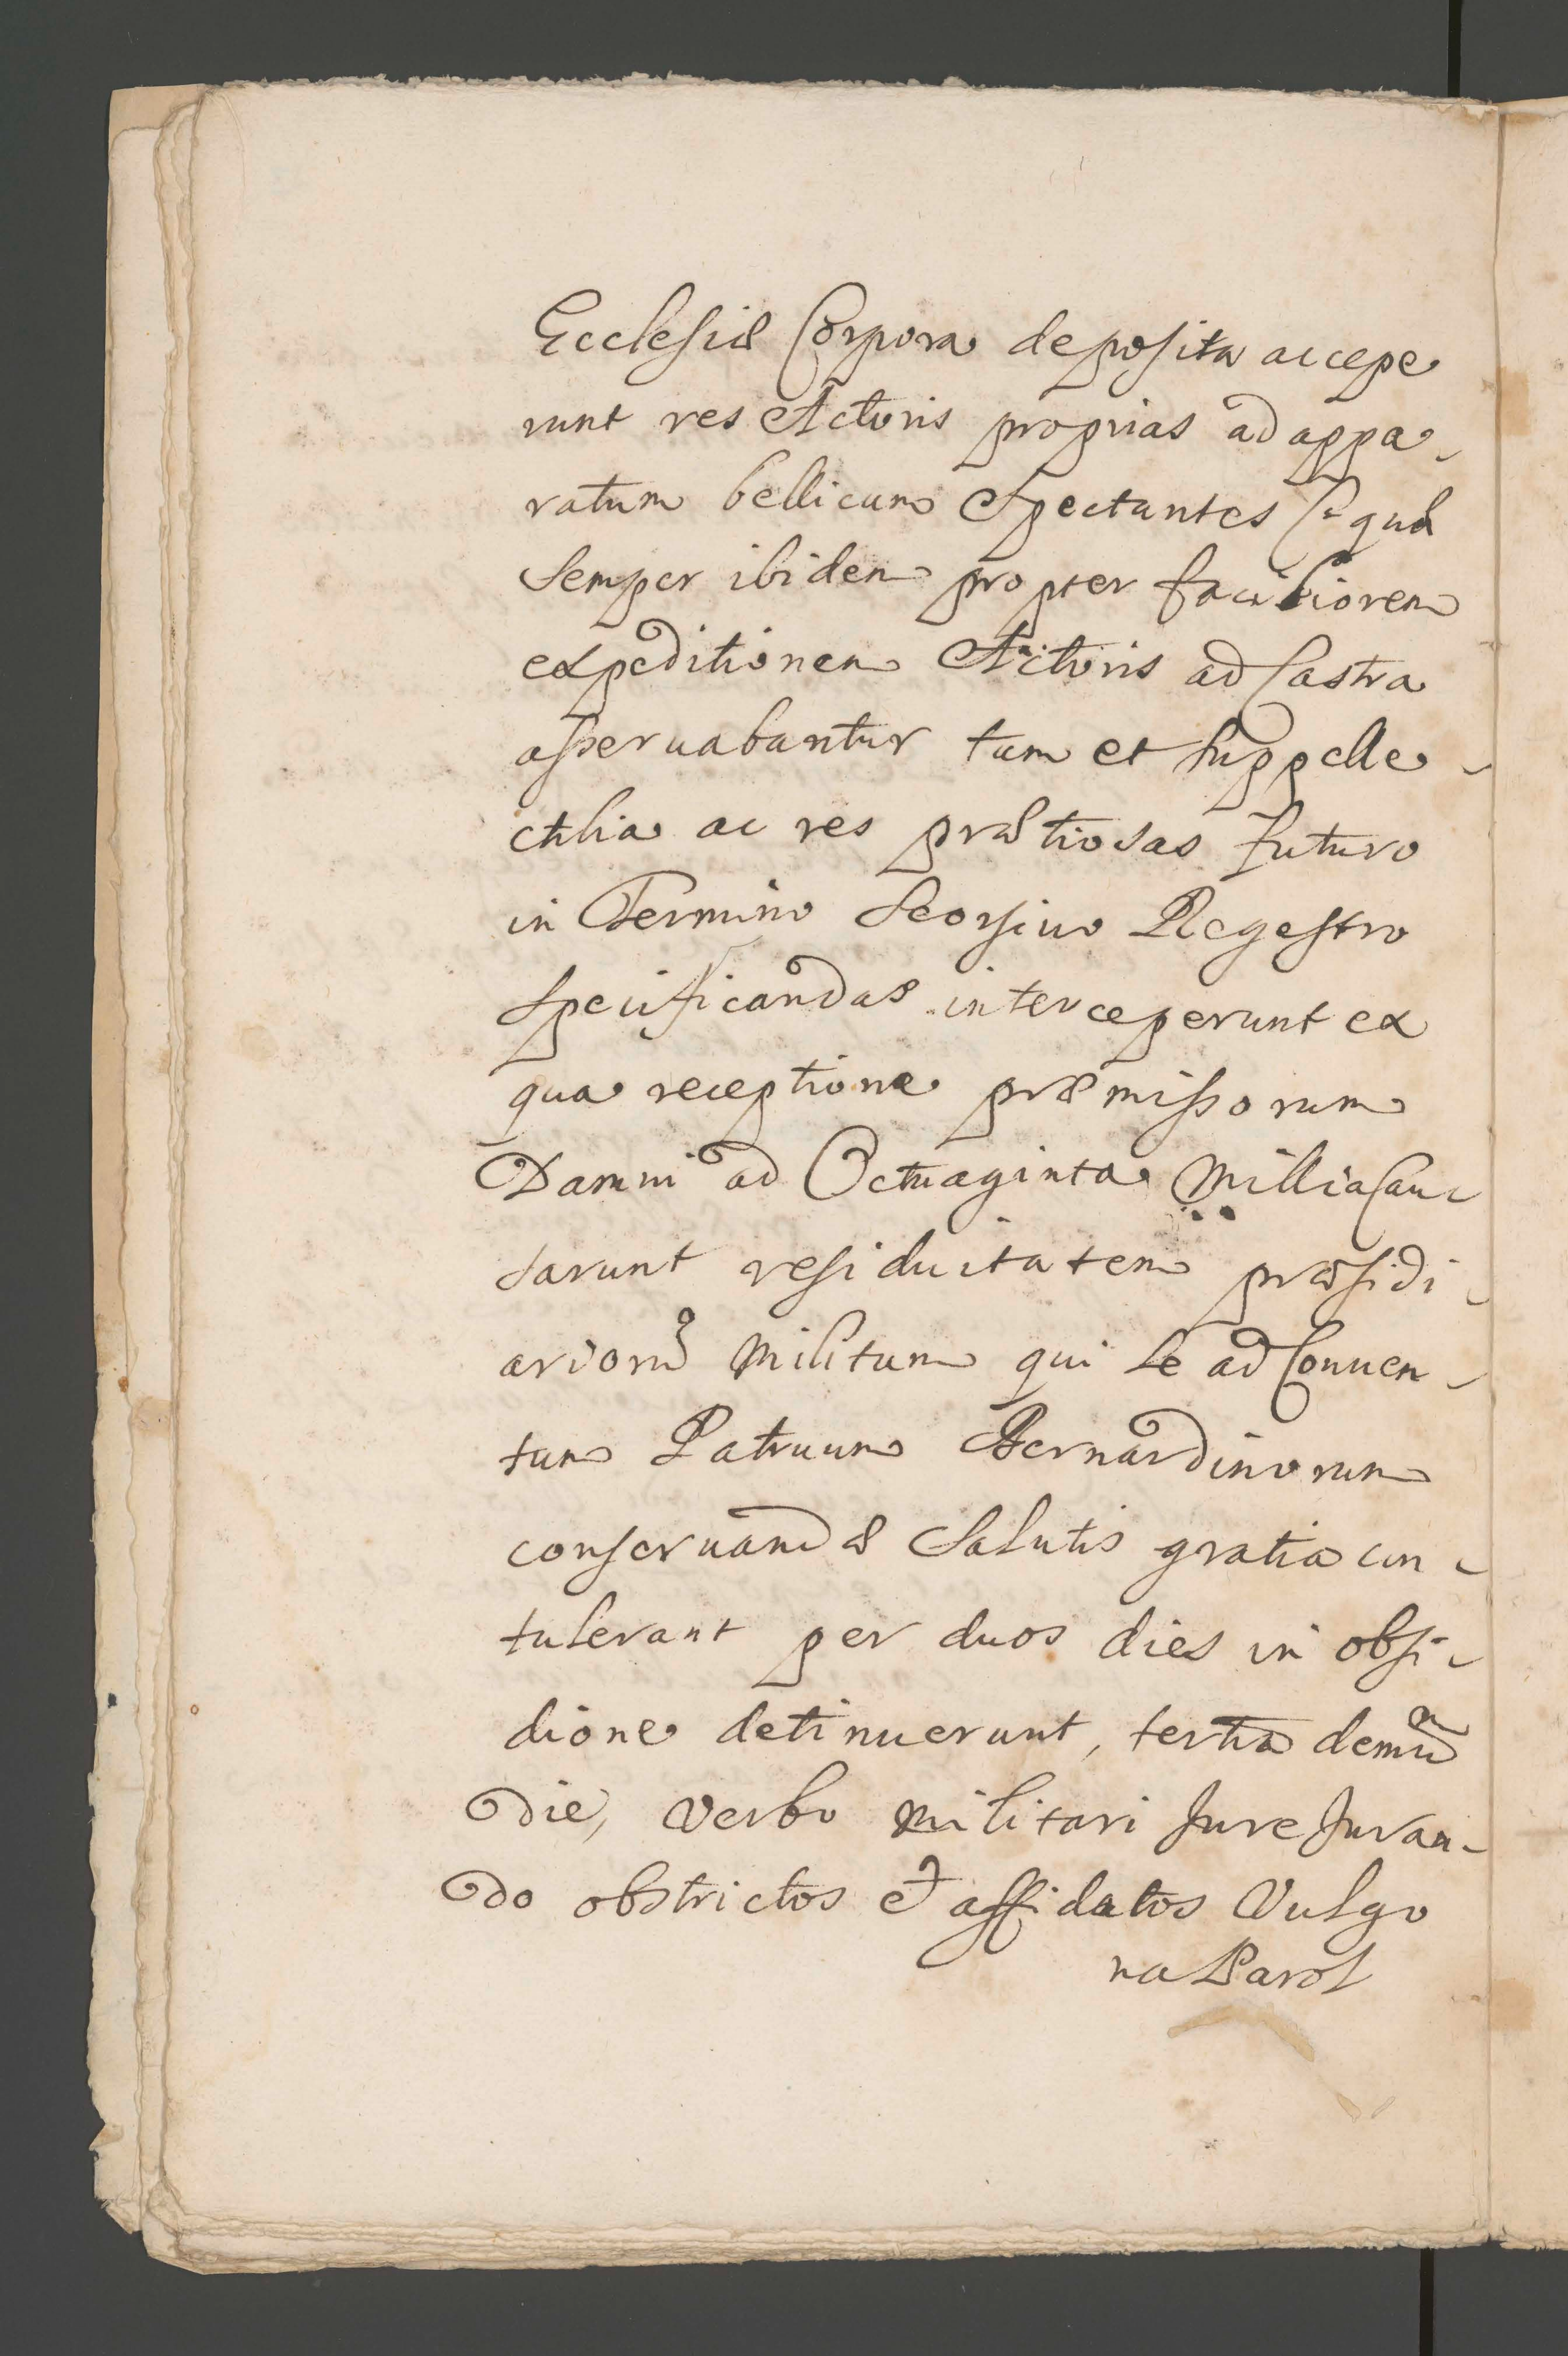 Ecclesiæ Corpora deposita accepe
runt res Actoris proprias ad appa-
ratum bellicum Spectantes quæ
Semper ibidem propter faciliorem
expeditionem Actoris ad Castra
asseruabantur tum et suppelle-
ctilia ac res prætiosas futuro
in Termino Seorsiuo Regestro
Specificandas interceperunt ex
qua receptione præmissorum
Damni ad Octuaginta Millia Cau-
sarunt residuitatem præsidi-
ariorũ Militum qui se ad Conuen-
tum Patruum Bernardinorum
conseruandæ Salutis gratia con-
tulerant per duos dies in obsi-
dione detinuerunt, tertia demũ
die, Verbo Militari Jure Juran-
do obstrictos et affidatos Vulgo
na Parol